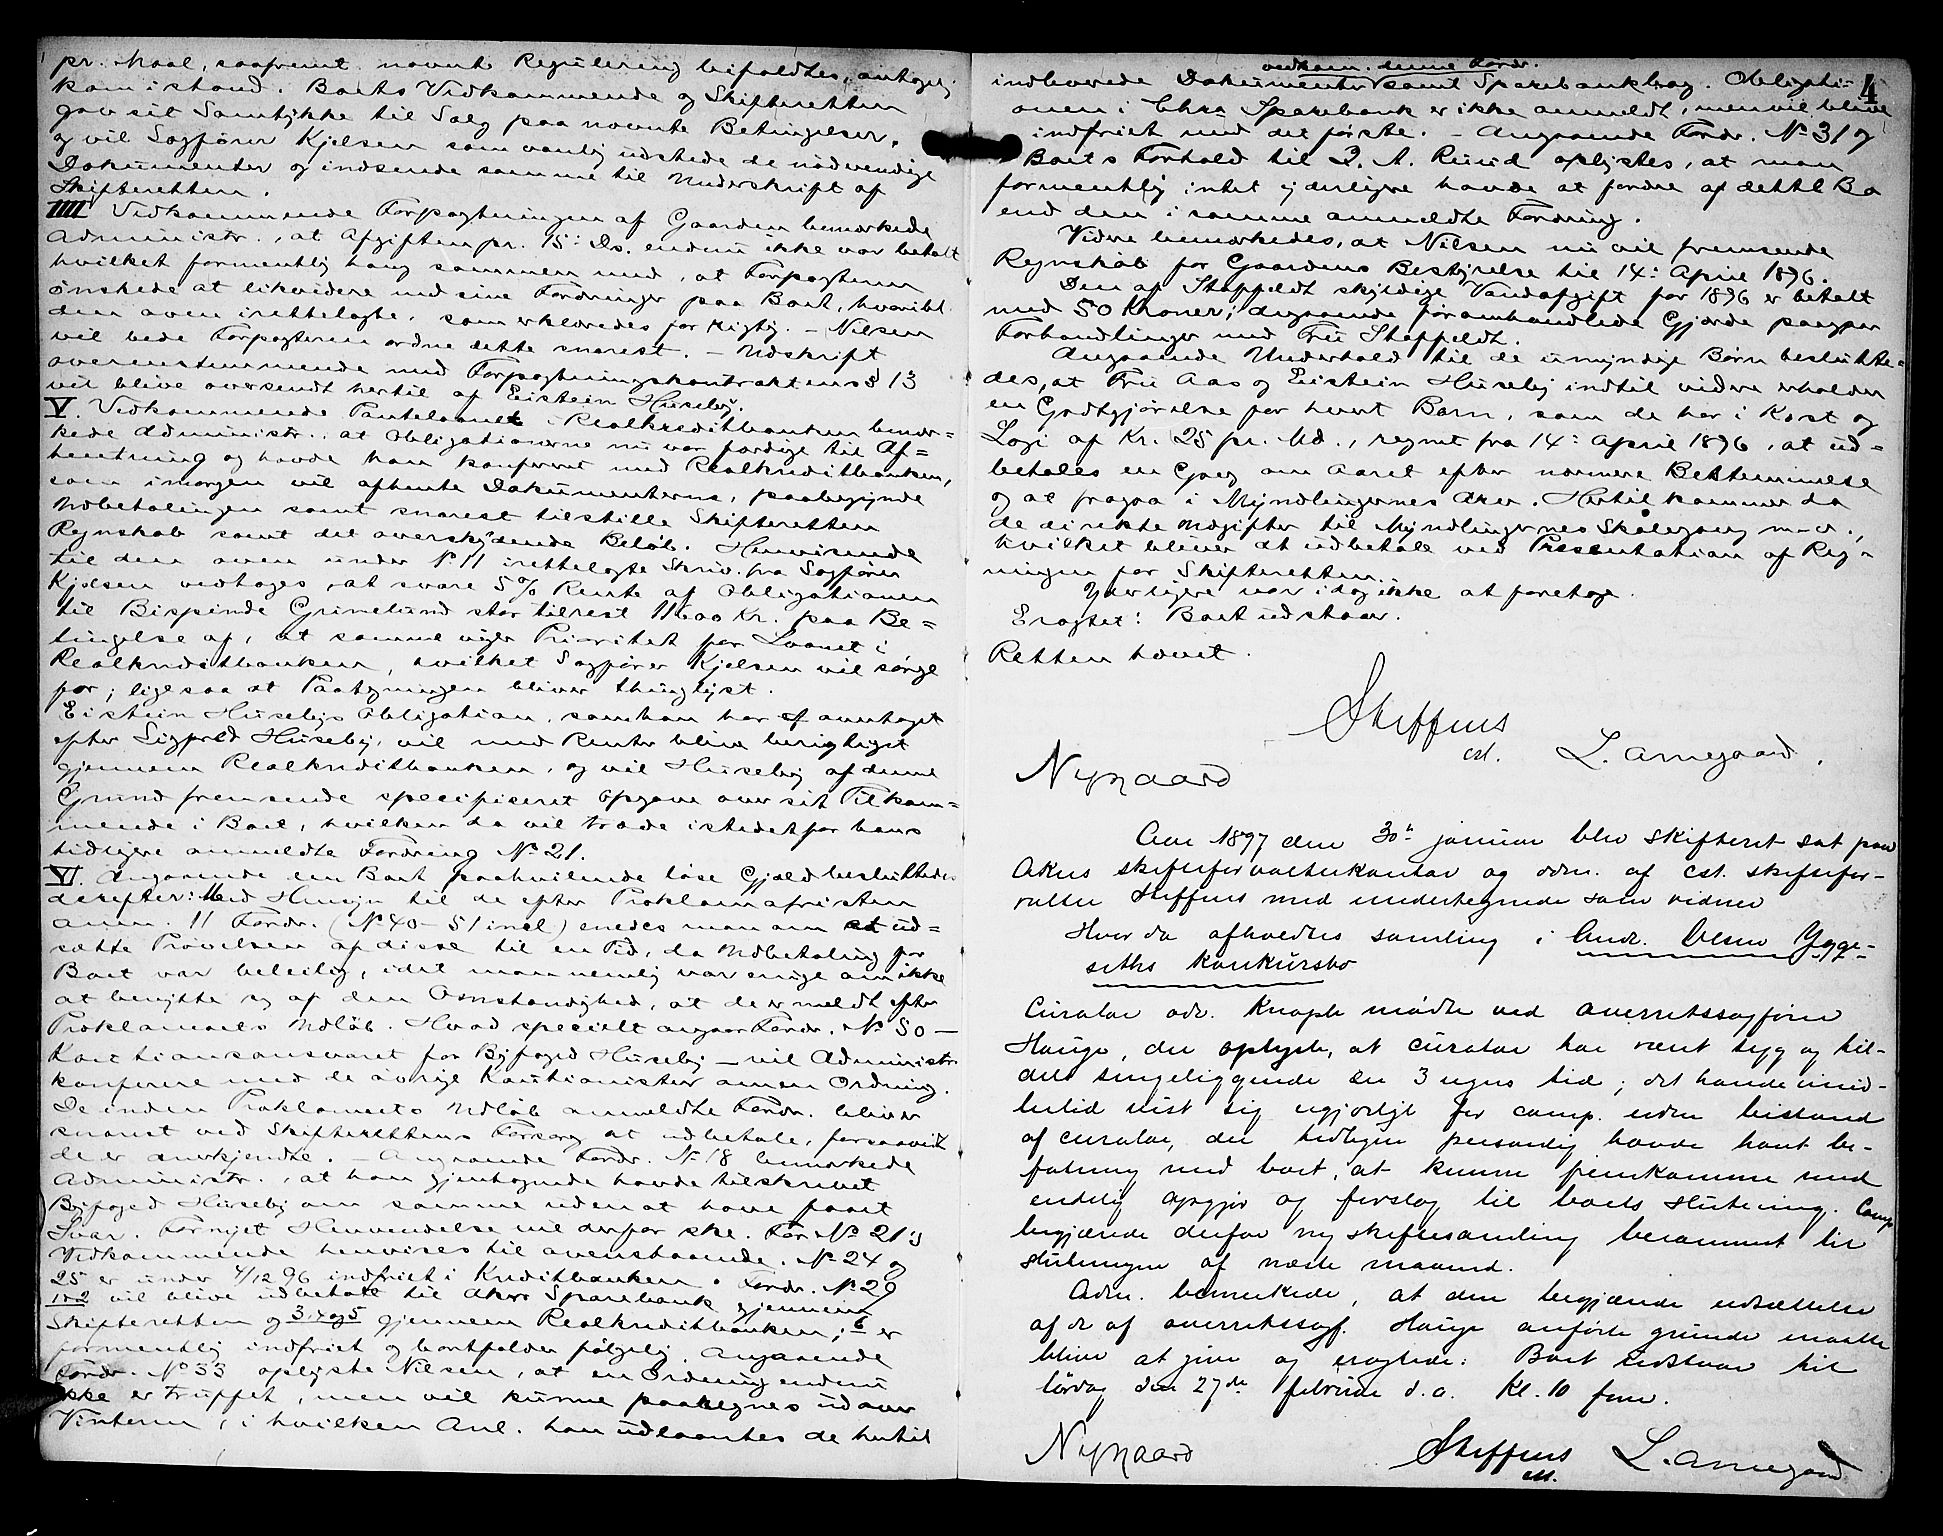 pr. Maal, saafremt nævnte Regulering bifaldtes, antagelig
kom istand. Boets Vidkommende og Skifteretten
gav sit Samtykke til Salg paa nævnte Betingelser,
og vil Sagfører Kjelsen som vanlig udstede de nødvendige
Dokumenter og indsende samme til Underskrift af
Skifteretten.
IIII Vedkommende Forpagtningen af Gaarden bemærkede
Administr., at Afgiften pr. 15: Ds. endnu ikke var betalt
hvilket formentlig hang sammen med, at Forpagteren
ønskede at likvidere med sine Fordringer paa Boet, hvoribl.
den oven irettelagte, som erklæredes for rigtig. – Nilsen
vil bede Forpagteren ordne dette snarest. – Udskrift
overensstemmende med Forpagtningskontraktens § 13
vil blive oversendt hertil af Eistein Huseby.
V. Vedkommende Pantelaanet i Realkreditbanken bemær=
kede Administr., at Obligationerne nu var færdige til Af=
hentning og havde han konfereret med Realkreditbanken,
som imorgen vil afhente Dokumenterne, paabegynde
Udbetalingen samt snarest tilstille Skifteretten
Regnskab samt det overskydende Beløb. Henvisende
til den oven under No 11 irettelagte Skriv. fra Sagfører
Kjelsen vedtoges, at svare 5 % Rente af Obligationen
til Bispinde Grimelund stor tilrest 11600 Kr. paa Be=
tingelse af, at samme viger Prioritet for Laanet i
Realkreditbanken, hvilket Sagfører Kjelsen vil sørge
for; ligesaa at Paategningen bliver thinglyst.
Eistein Husebys Obligation, som han har overtaget
efter Sigfred Huseby, vil med Renter blive berigtiget
gjennem Realkreditbanken, og vil Huseby af denne
Grund fremsende specificeret Opgave over sit Tilkom=
mende i Boet, hvilken da vil træde istedetfor hans
tidligere anmeldte Fordring No 21.
VI. Angaaende en Boet paahvilende løse Gjæld besluttedes
derefter: Med Hensyn til de efter Proklamafristen
anm. 11 Fordr. (No 40 – 51 incl) enedes man om at ud=
sætte Prøvelsen af disse til en Tid, da Udbetaling for
Boet var beleilig, idet man nemlig var enige om ikke
at benytte sig af den Omstændighed, at de er meldt efter
Proklamaets Udløb. Hvad specielt angaar Fordr. No 50 –
Kautionsansvaret for Byfoged Huseby – vil Administr
konferere med de øvrige Kautionister om en Ordning.
De inden Proklamaets Udløb anmeldte Fordr. bliver
snarest ved Skifterettens Forsorg at udbetale, forsaavidt
de er anerkjendte. – Angaaende Fordr. No 18 bemærkede
Administr., at han gjentagende havde tilskrevet
Byfoged Huseby om samme uden at have faaet
Svar. Fornyet Henvendelse vil derfor ske. For No 21's
Vidkommende henvises til ovenstaaende. No 24 og
25 er under 4/12 96 indfriet i Kreditbanken. Fordr. No 29
1 & 2 vil blive udbetalt til Akers Sparebank gjennem
Skifteretten og 3, 4 og 5 gjennem Realkreditbanken; 6 er
formentlig indfriet og bortfalder følgelig. Angaaende
Fordr. No 33 oplyste Nilsen, at en Ordning endnu
ikke er truffet, men vil kunne paaregnes udover
Vinteren, i hvilken Anl. han udlaantes de hertil
4
vedkom. denne Fordr.
indleverede Dokumenter samt Sparebankbog. Obligati=
onen i Chra Sparebank er ikke anmeldt, men vil blive
indfriet med det første. – Angaaende Fordr. No 31 og
Boets Forhold til A. Ruud oplystes, at man
formentlig intet yderligere havde at fordre af dettes Bo
end den i samme anmeldte Fordring.
Videre bemærkedes, at Nilsen nu vil fremsende
Regnskab for Gaardens Bestyrelse til 14: April 1896.
Den af Steffeldt skyldige Vandafgift for 1896 er betalt
med 50 Kroner; angaaende føromhandlede Gjærde paagaar
Forhandlinger med Fru Steffeldt.
Angaaende Underhold til de umyndige Børn beslutte=
des, at Fru Aas og Eistein Huseby indtil videre erholder
en Godtgjørelse for hvert Barn, som de har i Kost og
Logi af Kr. 25 pr. Md., regnet fra 14: April 1896, at ud=
betales en Gang om Aaret efter nærmere Bestemmelse
og at fragaa i Myndlingernes Arv. Hertil kommer da
de direkte Udgifter til Myndlingernes Skolegang m. v.,
hvilket bliver at udbetale ved Presentation af Reg=
ninger for Skifteretten.
Yderligere var idag ikke at foretage.
Eragtet: Boet udstaar.
Retten hævet.
Steffens
cst.
L. Arnegaard.
Nygaard
Aar 1897 den 30te januar blev skifteret sat paa
Akers skifteforvalterkontor og adm. af cst. skiftefor-
valter Steffens med undertegnede som vidner
Hvor da afholdtes samling i Andr. Olsen Ygge-
seths konkursbo
Curator adv. Knoph mødte ved overretssagfører
Hauge, der oplyste, at curator har været syg og til-
dels sengeliggende en 3 ugers tid; det havde imid-
lertid vist sig ugjørligt for comp. uden bistand
af curator, der tidligere personlig havde havt be-
fatning med boet, at kunne fremkomme med
endelig opgjør og forslag til boets slutning. Comp
begjærede derfor ny skiftesamling berammet til
slutningen af næste maaned.
Adm. bemerkede, at den begjærede udsættelse
af de af overretssagf. Hauge anførte grunde maatte
blive at give og eragtede: Boet udstaar til
lørdag den 27de februar d. a. Kl. 10 fm.
Nygaard
Steffens
cst.
L. Arnegaard